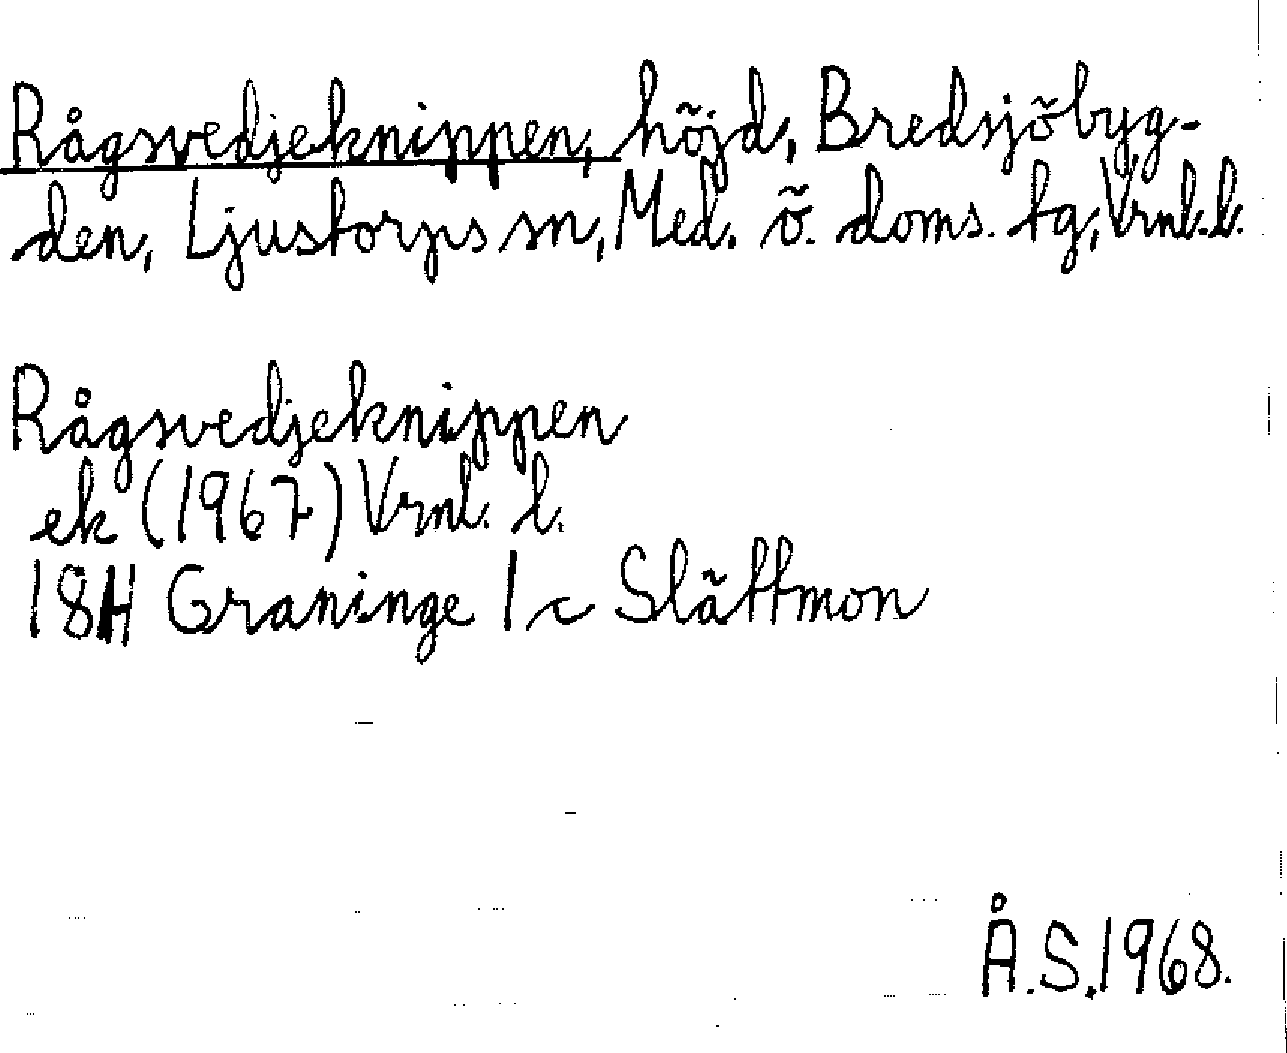 Rågsvedjeknippen, höjd, Bredsjöbyg-
den, Ljustorps sn, Med. ö. doms. tg, Vrnl. l.
Rågsvedjeknippen
ek (1967) Vrnl. l.
18H Graninge 1 c Slättmon
Å.S. 1968.